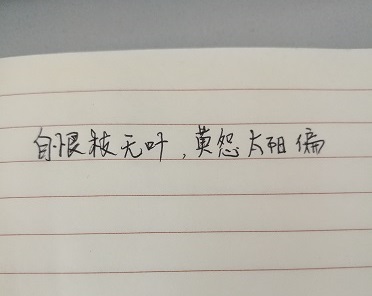 自恨枝无叶，莫怨太阳偏